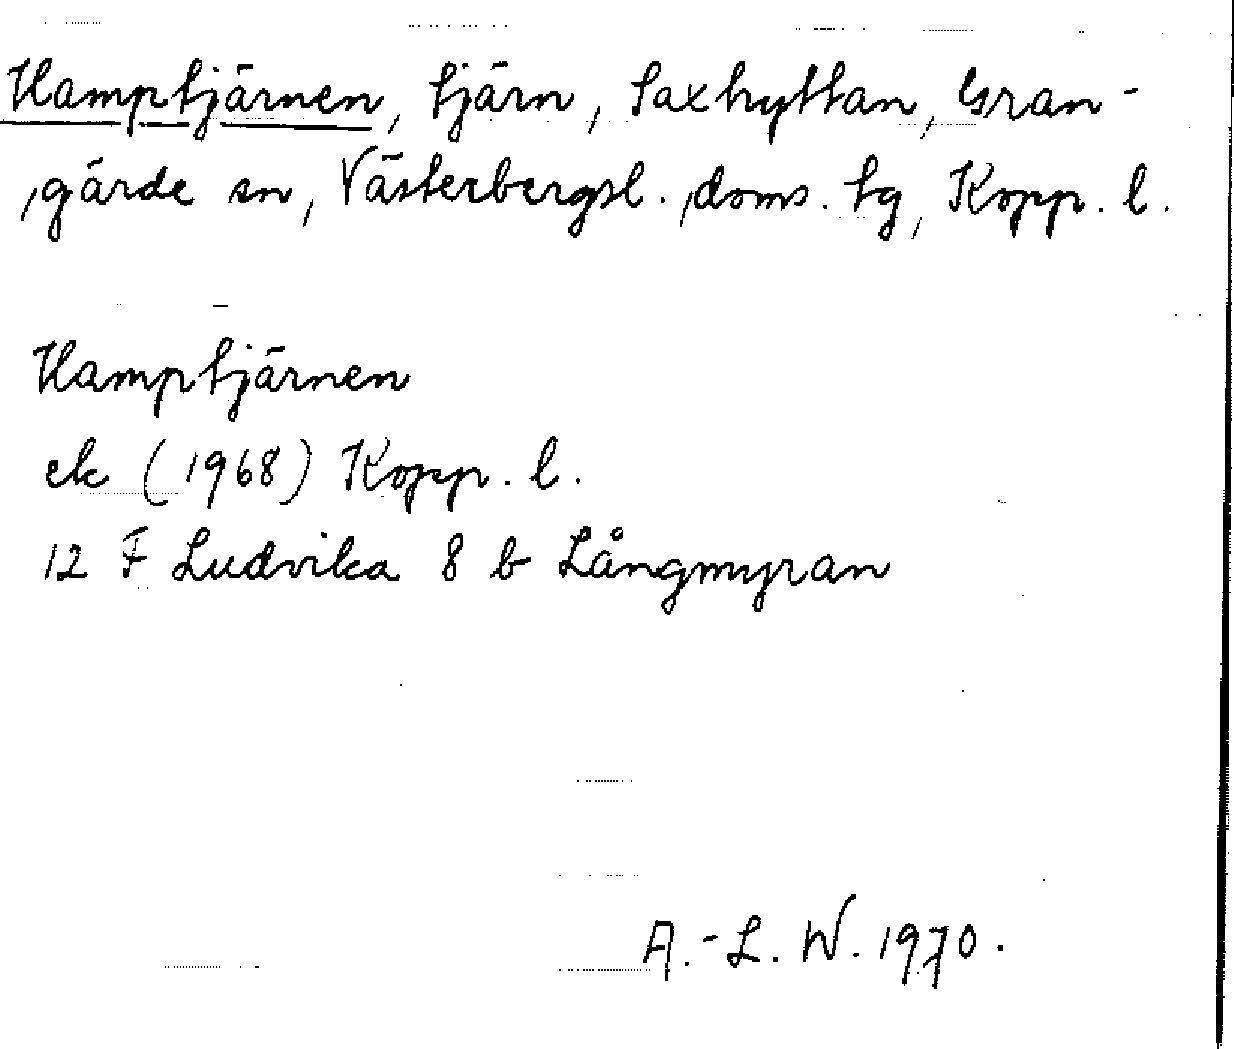 Hamptjärnen, tjärn, Saxhyttan, Gran-
gärde sn, Västerbergsl. doms. tg, Kopp. l.
Hamptjärnen
ek (1968) Kopp. l.
12 F Ludvika 8 b Långmyran
A.-L. W. 1970.